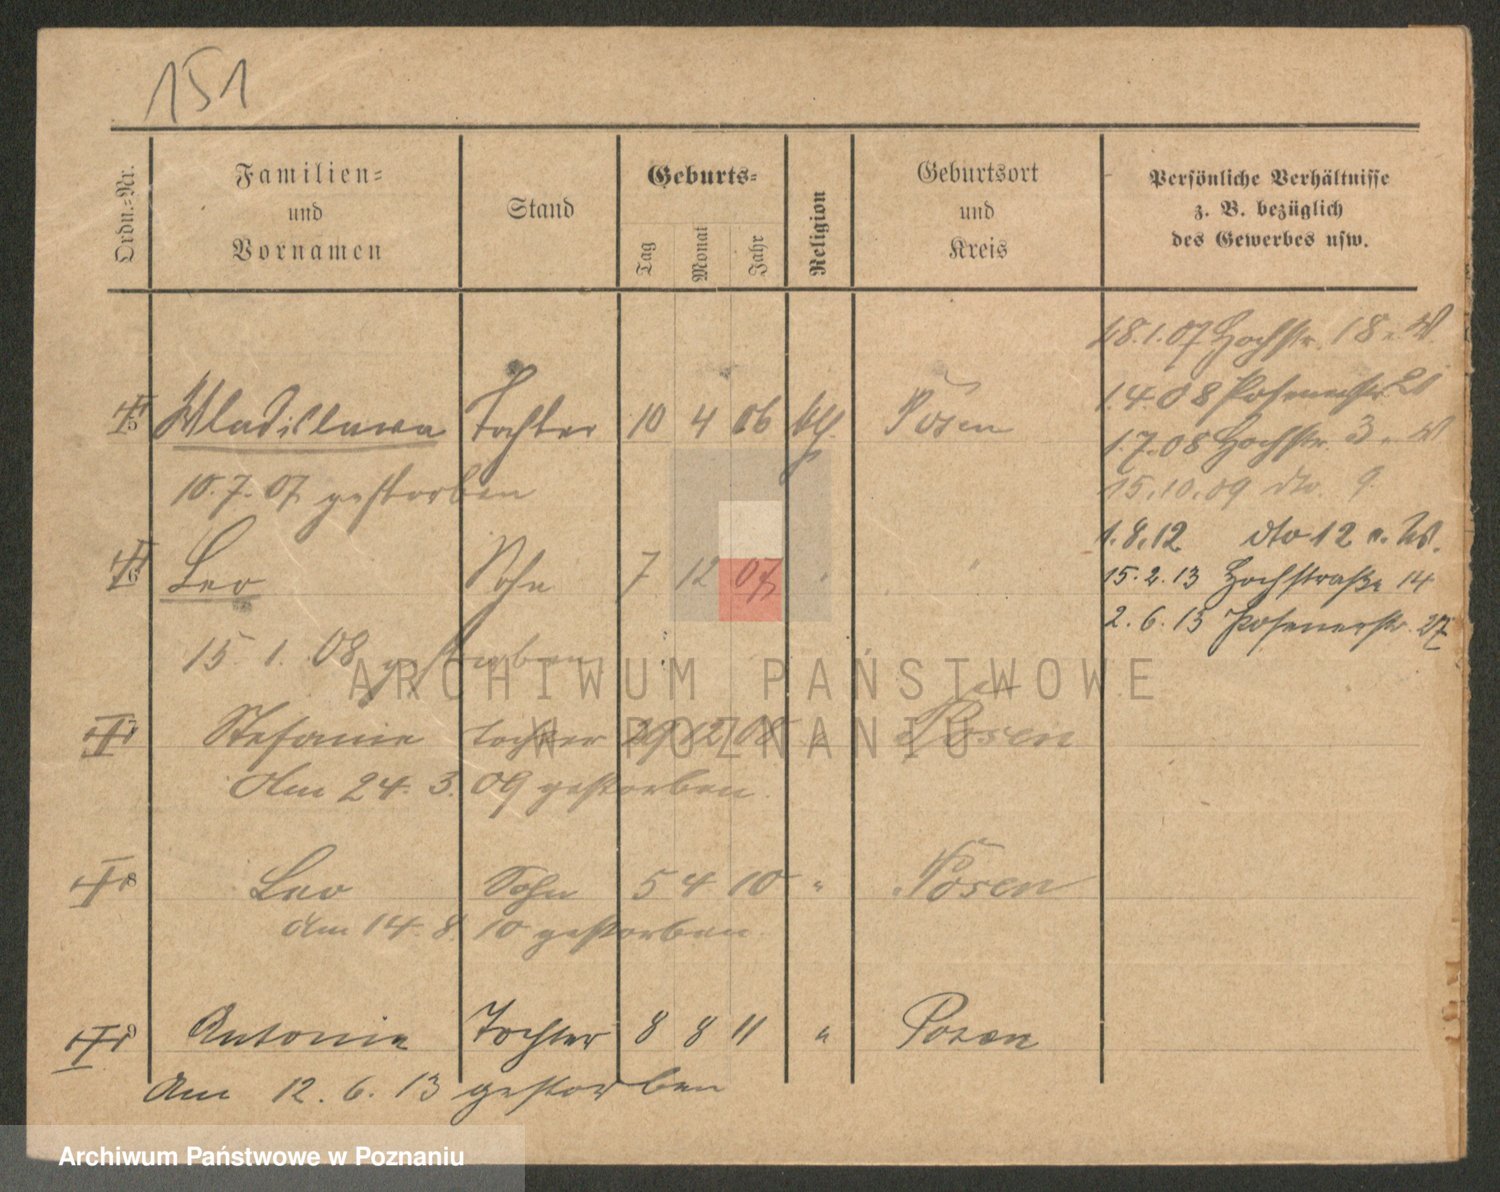 151
Ordn.-Nr.
Familien- und Vornamen
Stand
Geburts-
Tag Monat Jahr
Religion
Geburtsort und Kreis
Persönliche Verhältnisse z. B. bezüglich des Gewerbes usw.
18.1.07 Hochstr. 18 W.
1.4.08 Posenerstr. 21
5 Wladislawa Tochter 10 4 06 kth. Posen
1.7.08 Hochstr. 3 W
10.7.07 gestorben
15.10.09 dto. 9
1.8.12 dto 12 W.
6 Leo Sohn 7 12 07 " "
15.2.13 Hochstraße 14
2.6.13 Posenerstr. 27
15.1.08 gestorben
7 Stefanie Tochter 29 12 08 " Posen
Am 24.3.09 gestorben.
8 Leo Sohn 5 4 10 " Posen
Am 14.8.10 gestorben
9 Antonie Tochter 8 8 11 " Posen
Am 12.6.13 gestorben
ARCHIWUM PAŃSTWOWE
W POZNANIU
Archiwum Państwowe w Poznaniu